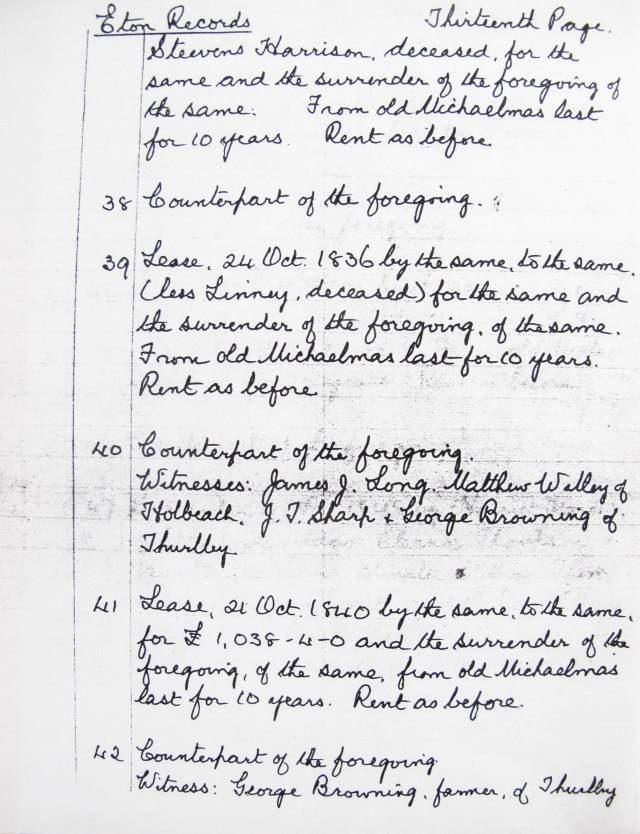 Eton Records Thirteenth Page.
Steevens Harrison, deceased, for the
same and the surrender of the foregoing of
the same. From old Michaelmas last
for 10 years. Rent as before.
38 Counterpart of the foregoing.
39 Lease, 24 Oct. 1836 by the same, to the same,
(less Linney, deceased) for the same and
the surrender of the foregoing, of the same.
From old Michaelmas last for 10 years.
Rent as before.
40 Counterpart of the foregoing.
Witnesses: James J. Long, Matthew Willey of
Holbeach, J. T. Sharp & George Browning of
Thurlby
41 Lease, 21 Oct. 1840 by the same, to the same,
for £ 1,038-4-0 and the surrender of the
foregoing, of the same, from old Michaelmas
last for 10 years. Rent as before.
42 Counterpart of the foregoing
Witness: George Browning, farmer, of Thurlby